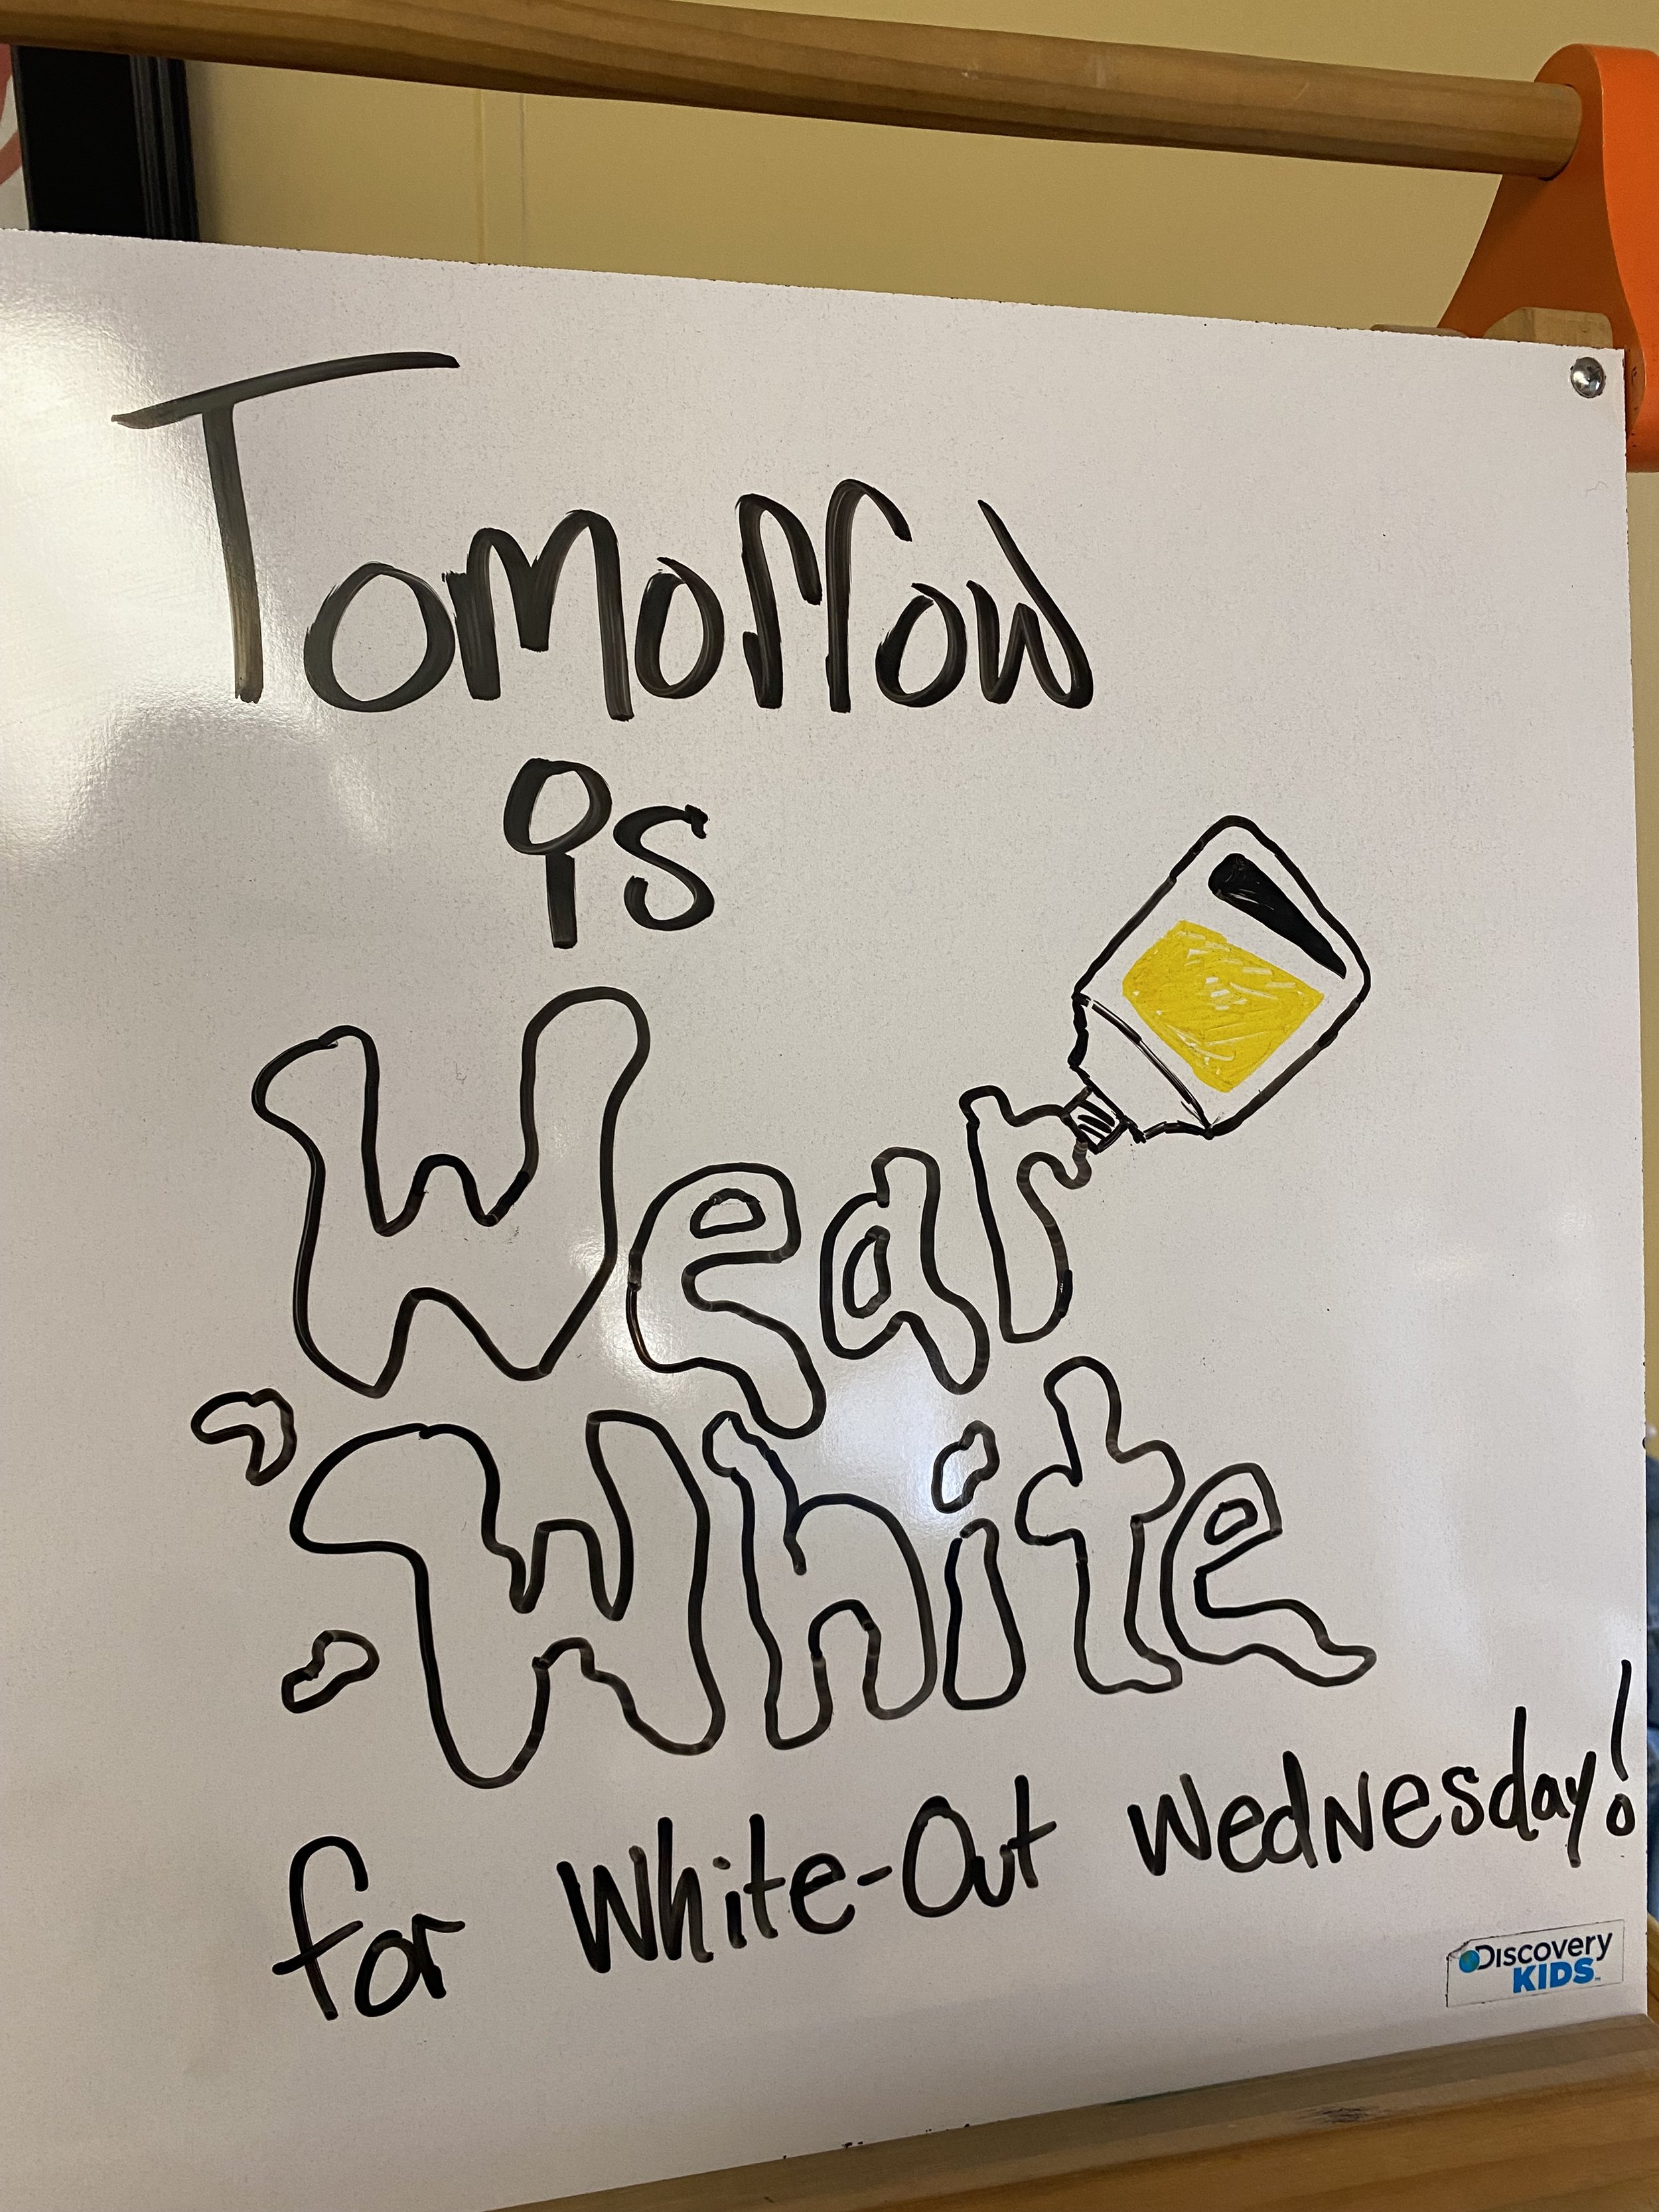 Tomorrow
is
Wear
White
for White-Out Wednesday!
Discovery
KIDS